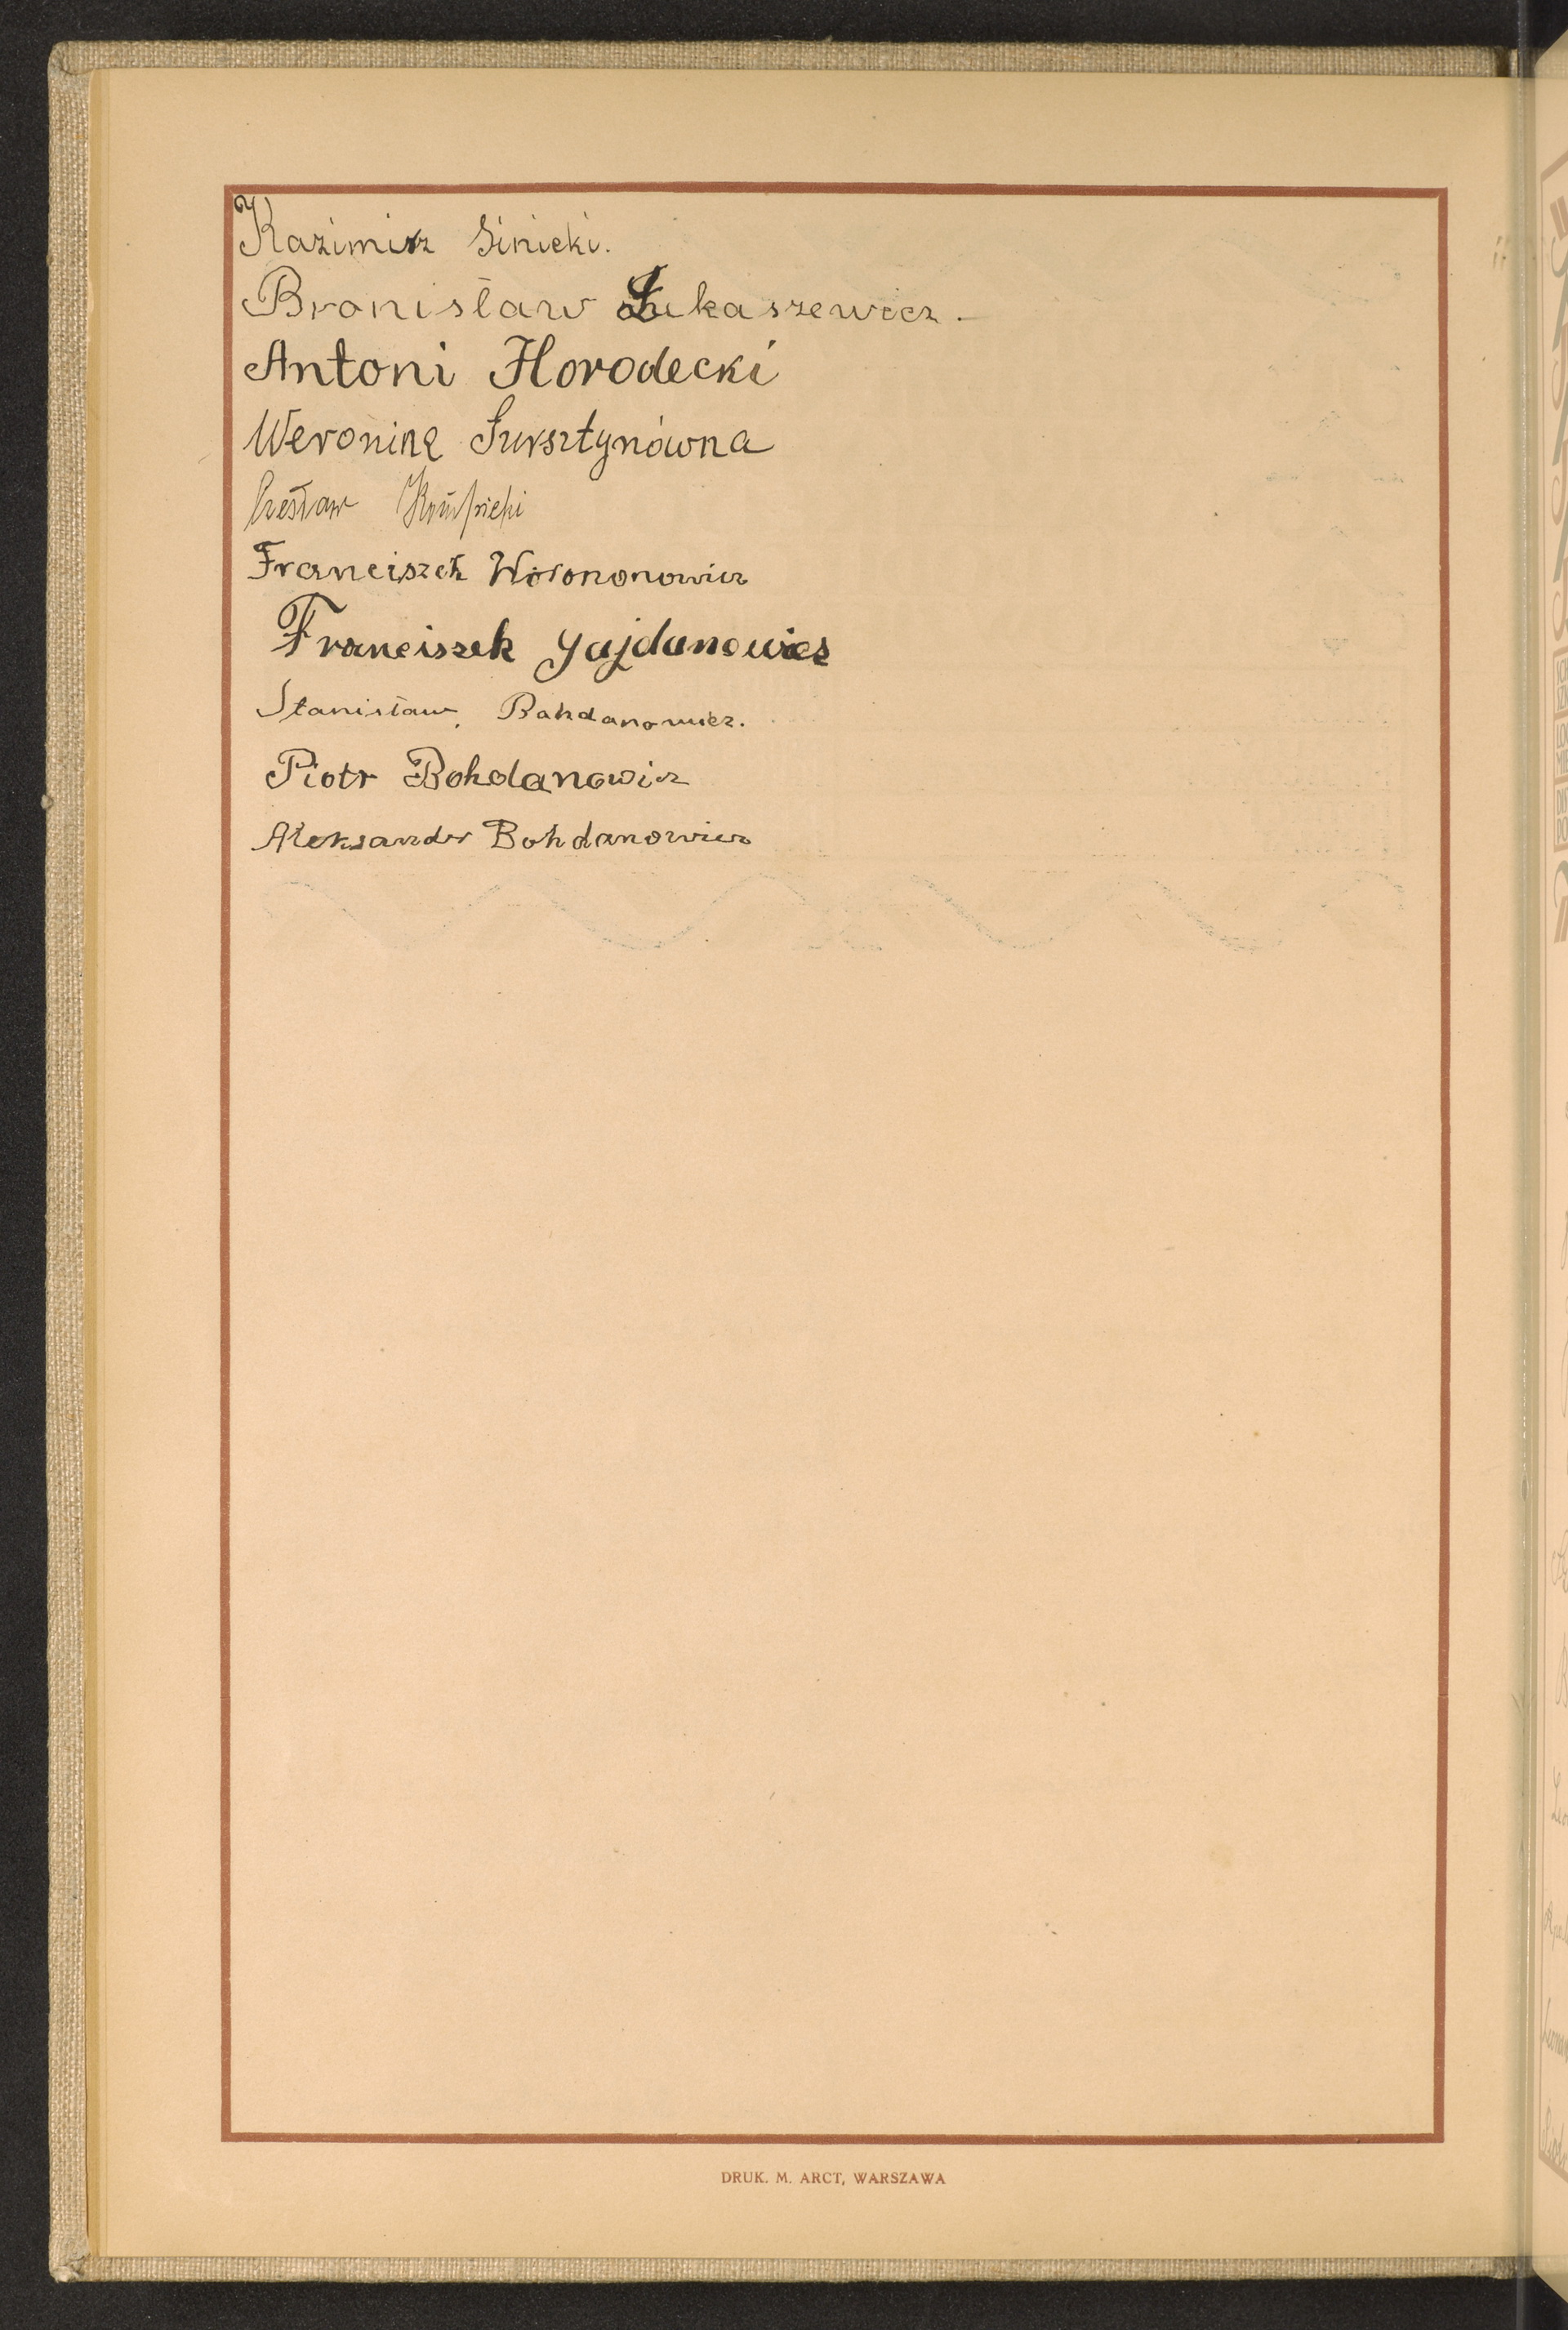 Kazimirz Sinicki.
Bronisław Łukaszewicz.
Antoni Horodecki
Weroninę Szursztynówna
Czesław
Franciszek Worononowicz
Franciszek Gajdanowicz
Stanisław Bohdanowicz.
Piotr Bohdanowicz
Aleksander Bohdanowicz
DRUK. M. ARCT, WARSZAWA